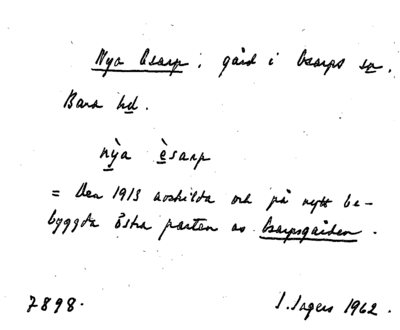 Nya Esarp; gård i Esarps sn.
Bara hd.
nỳa èsarp
= Den 1913 avskilda och på nytt be-
byggda östra parten av Esarpsgården.
7898. I. Ingers 1962.